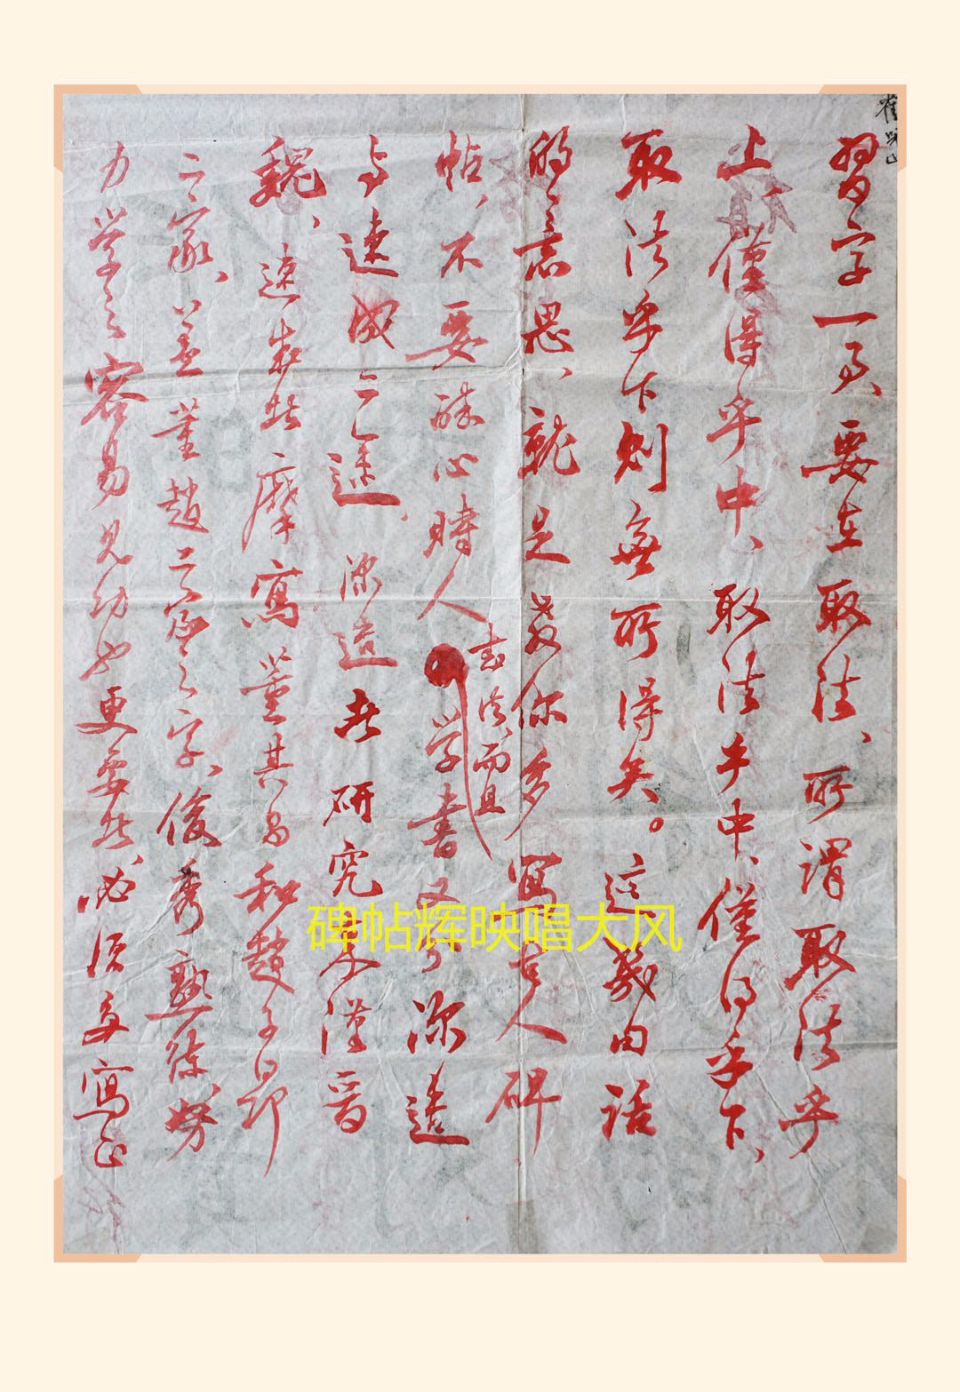 習字一事、要在取法、所謂取法乎
上僅得乎中、取法乎中、僅得乎下、
取法乎下則無所得矣。这幾句話
的意思、就是教你多寫古人碑
帖，不要酥心時人
書法，而且
学書又可深造
与速成之速、深造者研究漢晋
魏、速成者摩寫董其昌和趙子昂
二家、董趙二家之字、俊秀熟徐、努
力学之容易見功也更要然必須多寫正
碑帖辉映唱大风